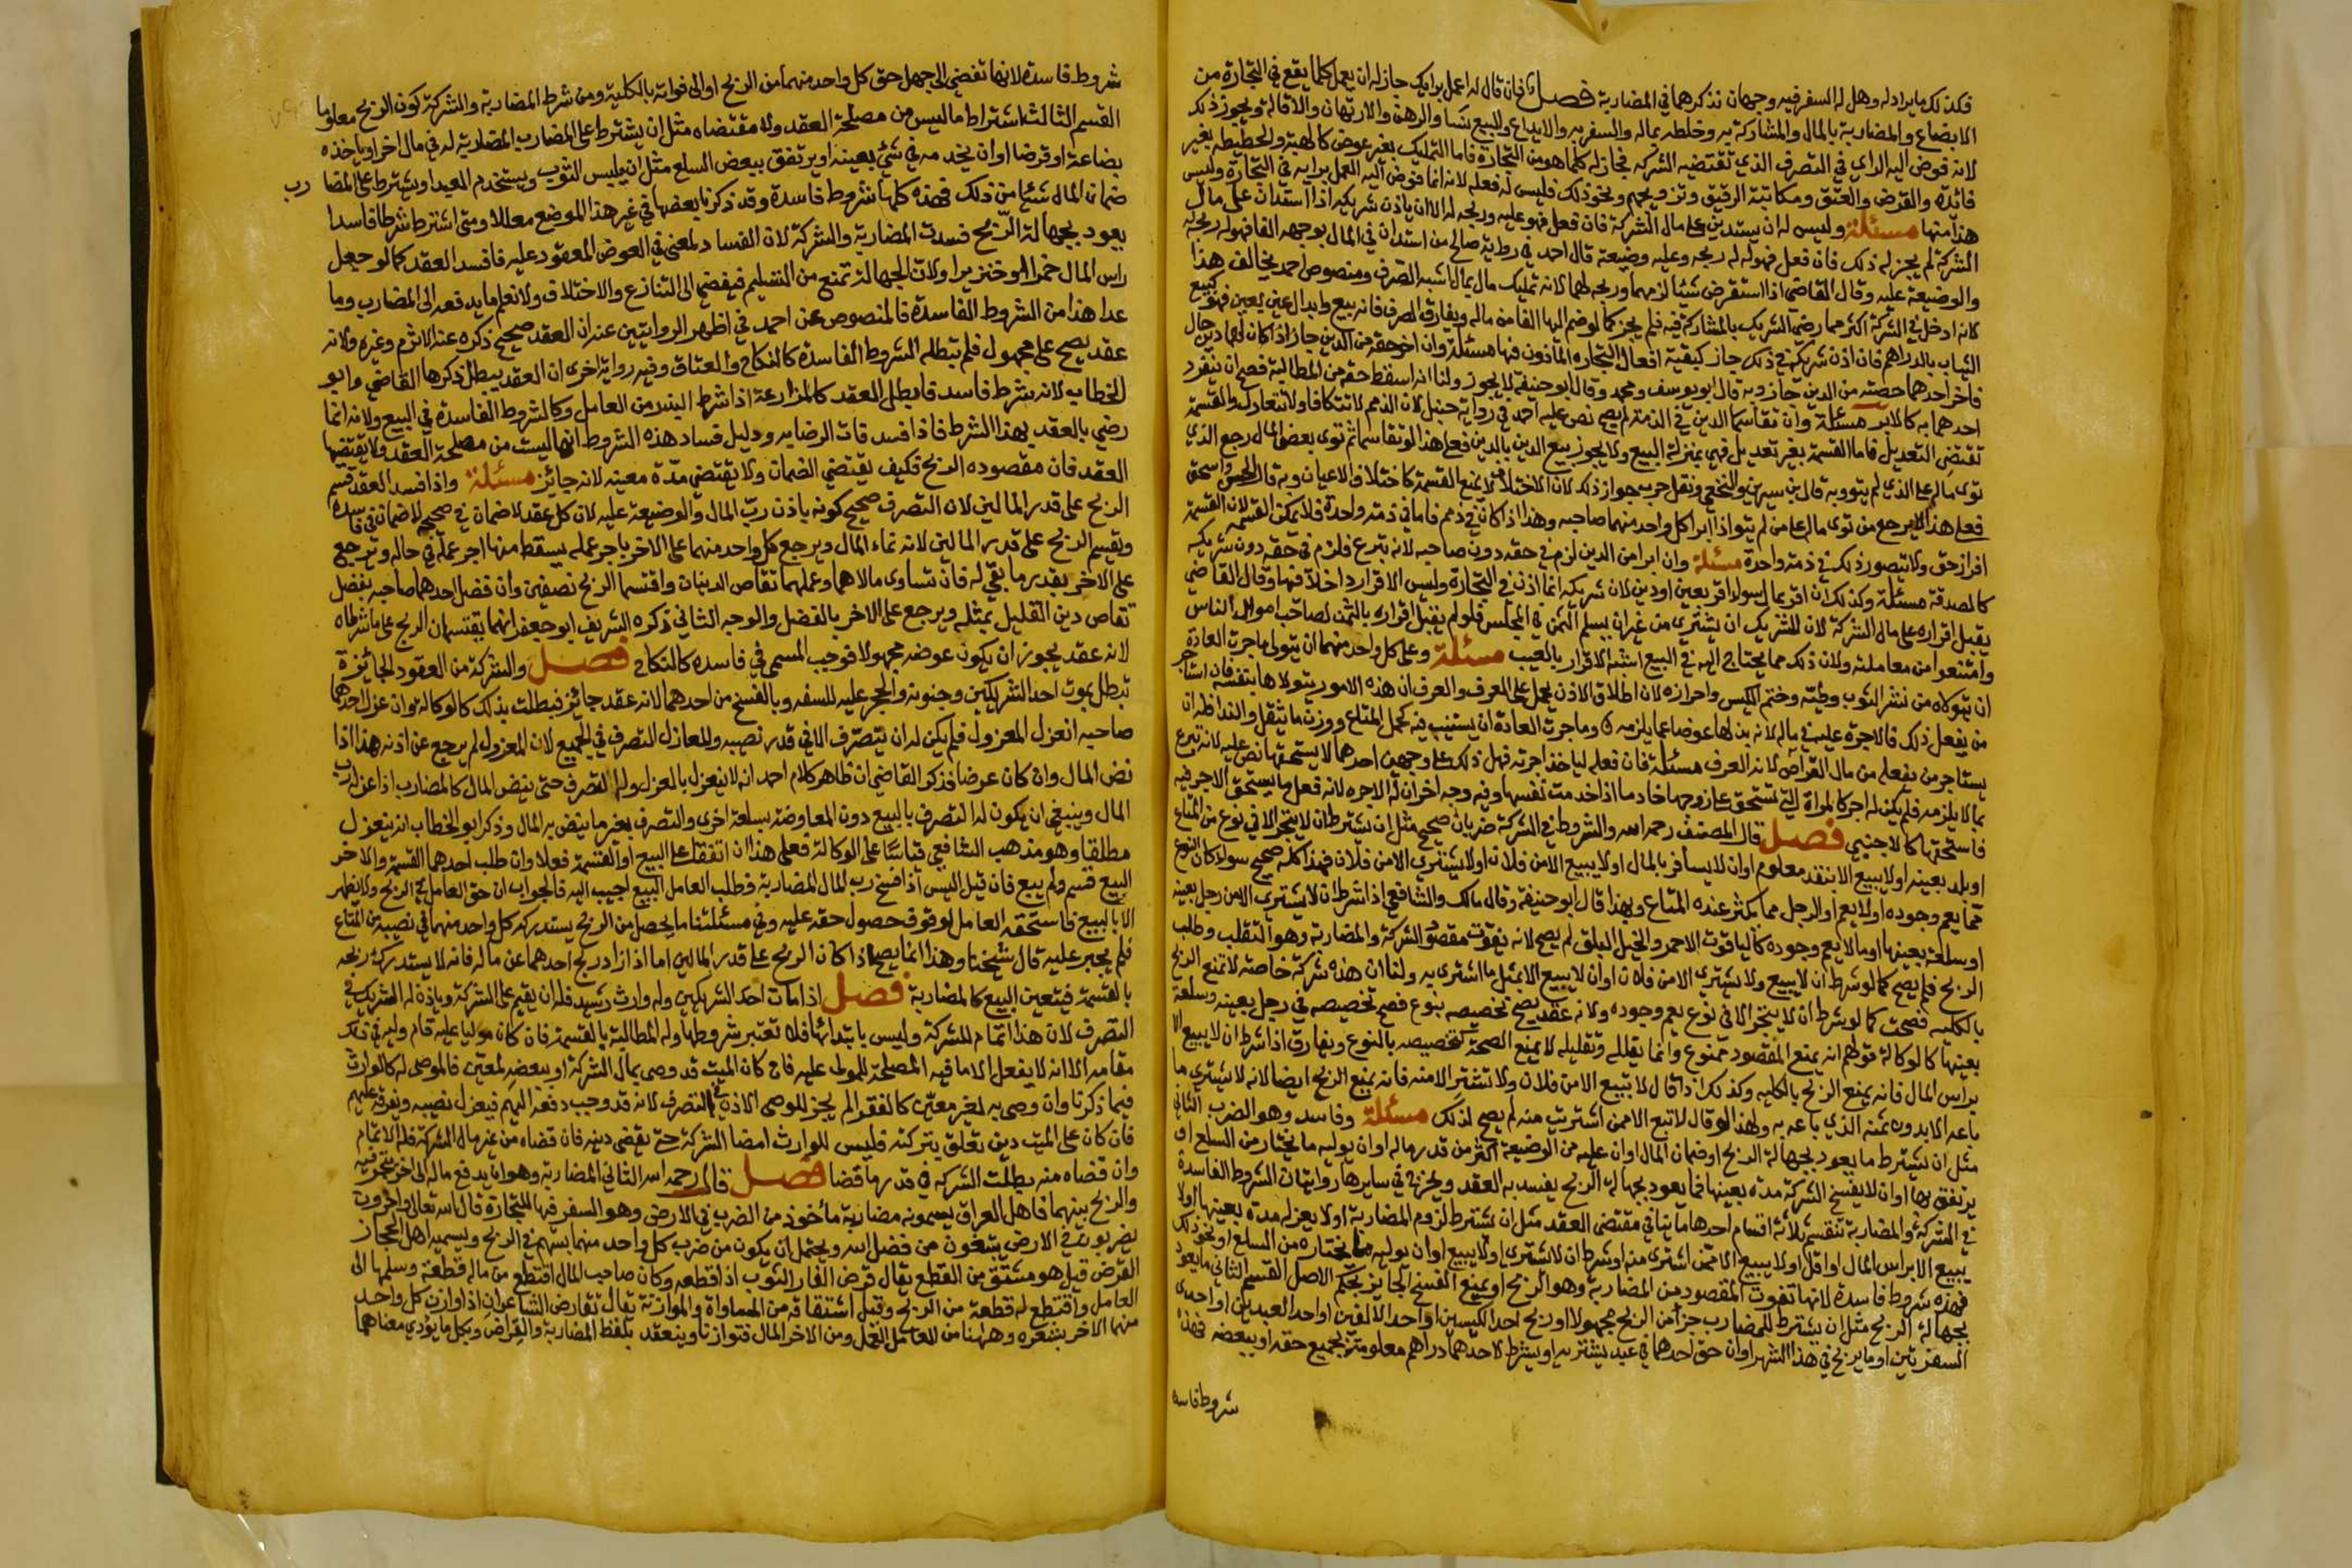 فكذلك ما يراد له وهل له السفر فيه وجهان نذكرهما في المضاربة فصل فان قال له اعمل برايك جاز له ان يعمل كلما يقع في التجارة من
الابضاع والمضاربة بالمال والمشاركة به وخلطه بماله والسفر به والايداع والبيع نسا والرهن والارتهان والاقالة ونحو ذلك
لانه فوض اليه الراي في التصرف الذي تقتضيه الشركة فجاز له كلما هو من التجارة فاما التمليك بغير عوض كالهبة والحطيطه بغير
فائدة والقرض والعتق ومكاتبة الرقيق وتزويجهم ونحو ذلك فليس له فعله لانه انما فوض اليه العمل برايه في التجارة وليس
هذا منها مسئلة وليس له ان يستدين على مال الشركة فان فعل فهو عليه وربحه له الا ان ياذن شريكه اذا استدان على مال
الشركة لم يجز له ذلك فان فعل فهو له له ربحه وعليه وضيعته قال احمد في رواية صالح من استدان في المال بوجهه الفا فهو له ربحه له
والوضيعة عليه وقال القاضي اذا استقرض شيئا لزمهما وربحه لهما لانه تمليك مال بمال اشبه الصرف ومنصوص احمد يخالف هذا
لانه ادخل في الشركة اكثر مما رضي الشريك بالمشاركة فيه فلم يجز كما لو ضم اليها الفا من ماله ويفارق الصرف فانه بيع وابدال عين بعين فهو كبيع
الثياب بالدراهم فان اذن شريكه في ذلك جاز كبقية افعال التجاره الماذون فيها مسئلة وان اخر حقه من الدين جاز اذا كان لهما دين حال
فاخر احدهما حصته من الدين جاز وبه قال ابو يوسف ومحمد وقال ابو حنيفة لا يجوز ولنا انه اسقط حقه من المطالبة فصح ان ينفرد
احدهما به كالابر مسئلة وان تقاسما الدين في الذمة لم يصح نص عليه احمد في رواية حنبل لان الذمم لا تتكافا ولا تتعادل والقسمة
تقتضي التعديل فاما القسمة بغير تعديل فهي بمنزلة البيع ولا يجوز بيع الدين بالدين فعلى هذا لو تقاسما ثم توى بعض المال رجع الذي
توى ماله على الذي لم يتو وبه قال بن سيرين والنخعي ونقل حرب جواز ذلك لان الاختلاف لا يمنع القسمة كاختلاف الاعيان وبه قال الحسن واسحق
فعلى هذا لا يرجع من توى ماله على من لم يتو اذا ابرا كل واحد منهما صاحبه وهذا اذا كان في ذمم فاما في ذمة واحدة فلا يمكن القسمه لان القسمة
افراز حق ولا يتصور ذلك في ذمة واحدة مسئلة وان ابرا من الدين لزم في حقه دون صاحبه لانه تبرع فلزم في حقه دون شريكه
كالصدقة مسئلة وكذلك ان اقر بمال سوا اقر بعين او دين لان شريكه انما اذن في التجارة وليس الاقرار داخلا فيها وقال القاضي
يقبل اقراره على مال الشركة لان للشريك ان يشتري من غير ان يسلم الثمن في المجلس فلو لم يقبل اقراره بالثمن لصاحب اموال الناس
وامتنعوا من معاملته ولان ذلك مما يحتاج اليه في البيع اشبه الاقرار بالعيب مسئلة وعلى كل واحد منهما ان يتولى ما جرت العادة
ان يتولاه من نشر الثوب وطيه وختم الكيس واحرازه لان اطلاق الاذن يحمل على العرف والعرف ان هذه الامور يتولاها بنفسه فان استاجر
من يفعل ذلك فالاجرة عليه في ماله لانه بذلها عوضا عما يلزمه وما جرت العادة ان يستنيب فيه كحمل المتاع ووزن ما ثقل والنداء له ان
يستاجر من يفعله من مال القراض لانه العرف مسئلة فان فعله لياخذ اجرته فهل له ذلك على وجهين احدهما لا يستحقها نص عليه لانه تبرع
بما لا يلزمه فلم يكن له اجر كالمراة التي تستحق على زوجها خادما اذا خدمت نفسها وفيه وجه اخر ان له الاجره لانه فعل ما يستحق الاجر فيه
فاستحقها كالاجنبي فصل قال المصنف رحمه الله والشروط في الشركة ضربان صحيح مثل ان يشترط ان لا يتجر الا في نوع من المتاع
او بلد بعينه او لا يبيع الا بنقد معلوم او ان لا يسافر بالمال او لا يبيع الا من فلان او لا يشتري الا من فلان فهذا كله صحيح سوا كان النوع
مما يعم وجوده او لا يعم او الرجل مما يكثر عنده المتاع وبهذا قال ابو حنيفة وقال مالك والشافعي اذا شرط ان لا يشتري الا من رجل بعينه
او سلعة بعينها او ما لا يعم وجوده كالياقوت الاحمر والخيل البلق لم يصح لانه يفوت مقصود الشركة والمضاربة وهو التقلب وطلب
الربح فلم يصح كما لو شرط ان لا يبيع ولا يشتري الا من فلان او ان لا يبيع الا بمثل ما اشترى به ولنا ان هذه شركة خاصة لا تمنع الربح
بالكليه فصحت كما لو شرط ان لا يتجر الا في نوع يعم وجوده ولانه عقد يصح تخصيصه بنوع فصح تخصيصه في رجل بعينه وسلعة
بعينها كالوكالة قولهم انه يمنع المقصود ممنوع وانما يقلله وتقليله لا يمنع الصحة كتخصيصه بالنوع ويفارق اذا شرط ان لا يبيع الا
براس المال فانه يمنع الربح بالكليه وكذلك اذا قال لا تبيع الا من فلان ولا تشتر الا منه فانه يمنع الربح ايضا لانه لا يشتري ما
باعه الا بدون ثمنه الذي باعه به ولهذا لو قال لا تبع الا ممن اشتريت منه لم يصح لذلك مسئلة وفاسد وهو الضرب الثاني
مثل ان يشترط ما يعود بجهالة الربح او ضمان المال او ان عليه من الوضيعة اكثر من قدر ماله او ان يوليه ما يختار من السلع او
يرتفق بها او ان لا يفسخ الشركة مدة بعينها فما يعود بجهالة الربح يفسد به العقد ويخرج في سايرها روايتان الشروط الفاسدة
في الشركة والمضاربة تنقسم ثلاثة اقسام احدها ما ينافي مقتضى العقد مثل ان يشترط لزوم المضاربة او لا يعزله مدة بعينها او لا
يبيع الا براس المال او اقل او لا يبيع الا ممن اشترى منه او شرط ان لا يشتري او لا يبيع او ان يوليه ما يختاره من السلع او نحو ذلك
فهذه شروط فاسدة لانها تفوت المقصود من المضاربة وهو الربح او يمنع الفسخ الجايز بحكم الاصل القسم الثاني ما يعود
بجهالة الربح مثل ان يشترط للمضارب جزا من الربح مجهولا او ربح احد الكيسين او احد الالفين او احد العبدين او احدى
السفرتين او ما يربح في هذا الشهر او ان حق احدهما في عبد يشتريه او يشترط لاحدهما دراهم معلومة بجميع حقه او ببعضه فهذه
شروط فاسدة
شروط فاسدة لانها تفضي الى جهل حق كل واحد منهما من الربح او الى فواته بالكلية ومن شرط المضاربة والشركة كون الربح معلوما
القسم الثالث اشتراط ما ليس من مصلحة العقد ولا مقتضاه مثل ان يشترط على المضارب المضاربة له في مال اخر او ياخذه
بضاعة او قرضا او ان يخدمه في شيئ بعينه او يرتفق ببعض السلع مثل ان يلبس الثوب ويستخدم العبد او يشترط على المضارب
ضمان المال شيئا من ذلك فهذه كلها شروط فاسدة وقد ذكرنا بعضها في غير هذا الموضع معللا ومتى اشترط شرطا فاسدا
يعود بجهالة الربح فسدت المضاربة والشركة لان الفساد لمعنى في العوض المعقود عليه فافسد العقد كما لو جعل
راس المال خمرا او خنزيرا ولان الجهالة تمنع من التسليم فيفضي الى التنازع والاختلاف ولا نعلم ما يدفعه الى المضارب وما
عدا هذا من الشروط الفاسدة فالمنصوص عن احمد في اظهر الروايتين عنه ان العقد صحيح ذكره عنه الاثرم وغيره ولانه
عقد يصح على مجهول فلم يبطله الشروط الفاسدة كالنكاح والعتاق وفيه رواية اخرى ان العقد يبطل ذكرها القاضي وابو
الخطاب لانه شرط فاسد فابطل العقد كالمزارعة اذا شرط البذر من العامل وكالشروط الفاسدة في البيع ولانه انما
رضي بالعقد بهذا الشرط فاذا فسد فات الرضا به ودليل فساد هذه الشروط انها ليست من مصلحة العقد ولا يقتضيها
العقد فان مقصوده الربح فكيف يقتضي الضمان ولا يقتضي مدة معينه لانه جائز مسئلة واذا فسد العقد قسم
الربح على قدر المالين لان التصرف صحيح كونه باذن رب المال والوضيعة عليه لان كل عقد لا ضمان في صحيحه لا ضمان في فاسده
ويقسم الربح على قدر المالين لانه نماء المال ويرجع كل واحد منهما على الاخر باجر عمله يسقط منها اجر عمله في ماله ويرجع
على الاخر بقدر ما بقي له فان تساوى مالاهما وعملهما تقاص الدينان واقتسما الربح نصفين وان فضل احدهما صاحبه بفضل
تقاص دين القليل بمثله ويرجع على الاخر بالفضل والوجه الثاني ذكره الشريف ابو جعفر انهما يقتسمان الربح على ما شرطاه
لانه عقد يجوز ان يكون عوضه مجهولا فوجب المسمى في فاسده كالنكاح فصل والشركة من العقود الجائزة
تبطل بموت احد الشريكين وجنونه والحجر عليه للسفه وبالفسخ من احدهما لانه عقد جائز فبطلت بذلك كالوكالة وان عزل احدهما
صاحبه انعزل المعزول فلم يكن له ان يتصرف الا في قدر نصيبه وللعازل التصرف في الجميع لان المعزول لم يرجع عن اذنه هذا اذا
نض المال وان كان عرضا فذكر القاضي ان ظاهر كلام احمد انه لا ينعزل بالعزل وله التصرف حتى ينض المال كالمضارب اذا عزله رب
المال وينبغي ان يكون له التصرف بالبيع دون المعاوضة بسلعة اخرى والتصرف بغير ما ينض به المال وذكر ابو الخطاب انه ينعزل
مطلقا وهو مذهب الشافعي قياسا على الوكالة فعلى هذا ان اتفقا على البيع او القسمة فعلا وان طلب احدهما القسمة والاخر
البيع قسم ولم يبع فان قيل اليس اذا فسخ رب المال المضاربة فطلب العامل البيع اجيب اليه فالجواب ان حق العامل في الربح ولا يظهر
الا بالبيع فاستحقه العامل لوقوف حصول حقه عليه وفي مسئلتنا ما يحصل من الربح يستدركه كل واحد منهما في نصيبه من المتاع
فلم يجبر عليه قال شيخنا وهذا انما يصح اذا كان الربح على قدر المالين اما اذا زاد ربح احدهما عن ماله فانه لا يستدرك ربحه
بالقسمة فيتعين البيع كالمضاربة فصل اذا مات احد الشريكين وله وارث رشيد فله ان يقيم على الشركة وياذن له الشريك في
التصرف لان هذا اتمام للشركة وليس بابتدائها فلا تعتبر شروطها وله المطالبة بالقسمة فان كان موليا عليه قام وليه في ذلك
مقامه الا انه لا يفعل الا ما فيه المصلحة للمولى عليه فان كان الميت قد وصى بمال الشركة او ببعضه لمعين فالموصى له كالوارث
فيما ذكرنا وان وصى به لغير معين كالفقرا لم يجز للوصي الاذن في التصرف لانه قد وجب دفعه اليهم فيعزل نصيبه ويفرقه عليهم
فان كان على الميت دين تعلق بتركته فليس للوارث امضا الشركة حتى يقضي دينه فان قضاه من غير مال الشركة فله الاتمام
وان قضاه منه بطلت الشركة في قدر ما قضا فصل قال رحمه الله الثاني المضاربة وهو ان يدفع ماله الى اخر يتجر فيه
والربح بينهما فاهل العراق يسمونه مضاربة مأخوذ من الضرب في الارض وهو السفر فيها للتجارة قال الله تعالى واخرون
يضربون في الارض يبتغون من فضل الله ويحتمل ان يكون من ضرب كل واحد منهما بسهم في الربح ويسميه اهل الحجاز
القرض قيل هو مشتق من القطع يقال قرض الفار الثوب اذا قطعه وكان صاحب المال اقتطع من ماله قطعة وسلمها الى
العامل واقتطع له قطعة من الربح وقيل اشتقاقه من المساواة والموازنة يقال تقارض الشاعران اذا وازن كل واحد
منهما الاخر بشعره وههنا من العامل العمل ومن الاخر المال فتوازنا وينعقد بلفظ المضاربة والقراض وبكل ما يؤدي معناهما